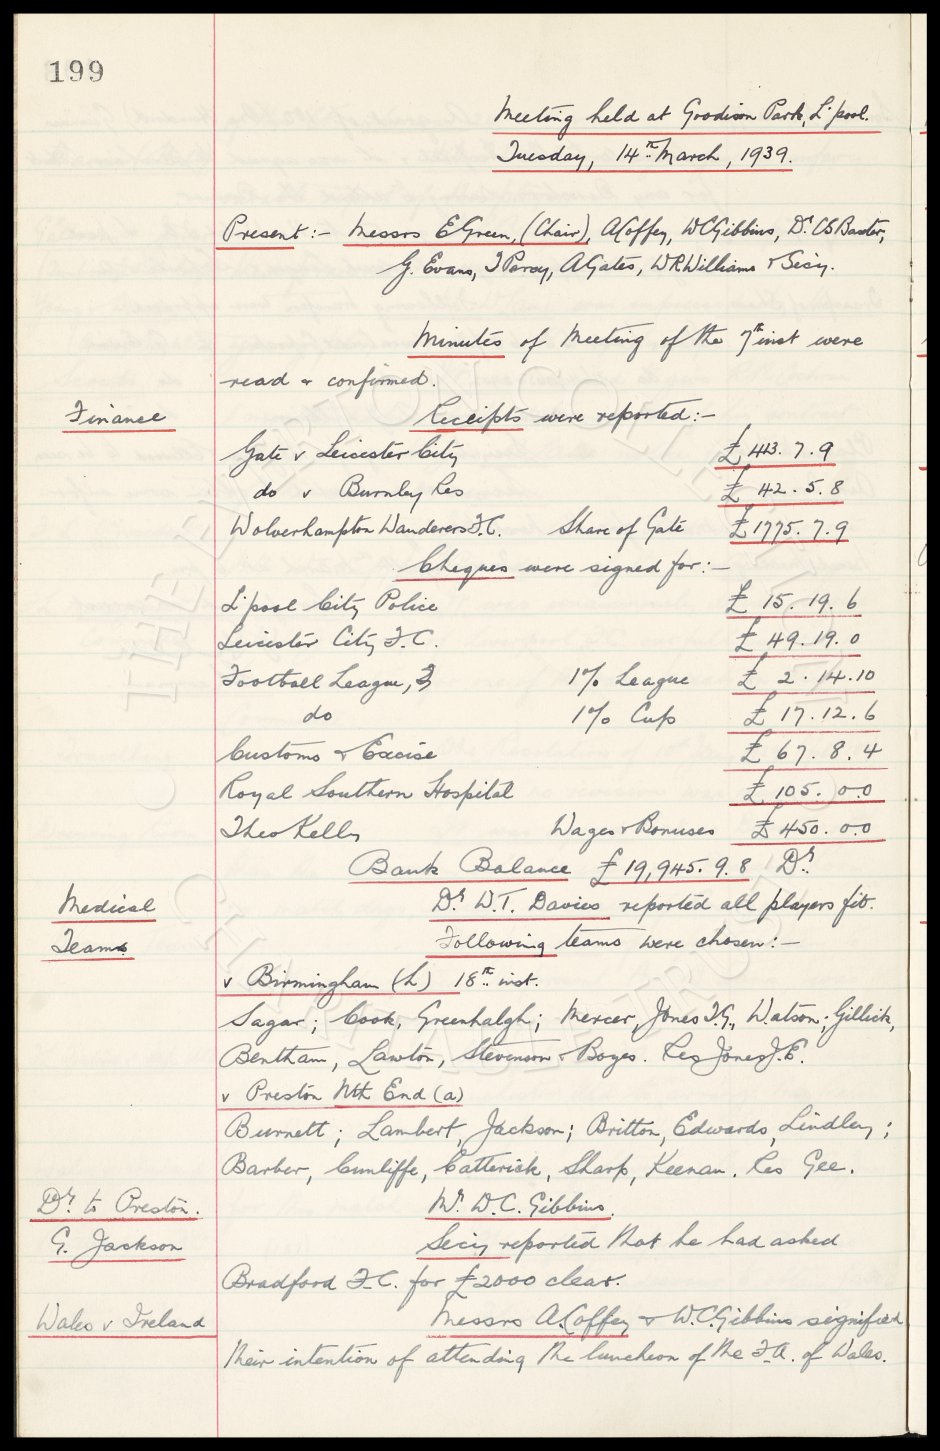 199
Meeting held at Goodison Park, L'pool.
Tuesday, 14th March, 1939.
Present:- Messrs E Green, (Chair), A Coffey, W C Gibbins, Dr. C S Baxter,
G. Evans, J Percy, A Gates, W R Williams & Secy.
Minutes of Meeting of the 7th inst were
read & confirmed.
Finance Receipts were reported:-
Gate v Leicester City £ 413. 7. 9
do v Burnley Res £ 42. 5. 8
Wolverhampton Wanderers F.C. Share of Gate £1775. 7. 9
Cheques were signed for:-
L'pool City Police £ 15. 19. 6
Leicester City F.C. £ 49. 19. 0
Football League, 1% League £ 2. 14. 10
do 1% Cup £ 17. 12. 6
Customs & Excise £ 67. 8. 4
Royal Southern Hospital £ 105. 0.0
Theo Kelly Wages & Bonuses £ 450. 0.0
Bank Balance £ 19,945. 9. 8 Dr.
Medical Dr. W.T. Davies reported all players fit.
Teams Following teams were chosen:-
v Birmingham (h) 18th inst.
Sagar; Cook, Greenhalgh; Mercer, Jones T.G., Watson; Gillick,
Bentham, Lawton, Stevenson & Boyes. Res Jones J.E.
v Preston Nth End (a)
Burnett; Lambert, Jackson; Britton, Edwards, Lindley;
Barber, Cunliffe, Catterick, Sharp, Keenan. Res Gee.
Dr. to Preston. Mr. W.C. Gibbins.
G. Jackson Secy reported that he had asked
Bradford F.C. for £2000 clear.
Wales v Ireland Messrs A. Coffey & W.C. Gibbins signified
their intention of attending the luncheon of the F.A. of Wales.
THE EVERTON COLLECTION
CHARITABLE TRUST